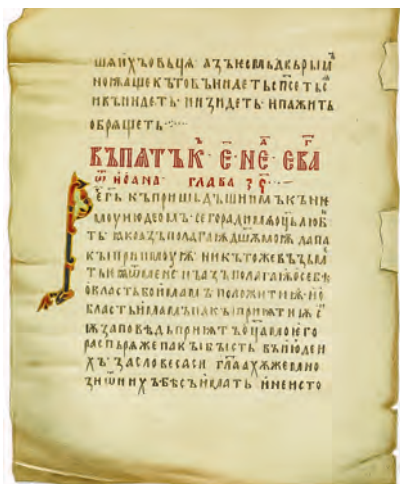 шѧихъовьцѧ азъѥсмьдкьрьм
иѡꙗщекътовъниде тьсп҃сетьс
ивъниде тъ· инзидеть· ипажить
обрѧщеть·
въпѧтък· е҃· не҃· ева
ѿ иоана· глава з҃ ч҃·
регь къпришьдъшиимъкънѥ
моуиюдеомъ· сегорадимѧоц҃ьлюб
ть· ꙗкоазъполагаѭдш҃ѫмоѭ дапа
къıприимоуѭ· никътожевъзьм
тьиѿмене· иазъполагаѭосебѣ
ѡбластьбоимамъ положитиѭ· ио
бластьимамъпакъıприѩтиѭ с
иѭзаповѣдьприѩтъоц҃амоѥго
распьрѧжепакъıбъıсть въиюдеи
хъ· засловесаси гл҃аахѫжемно
зиѿнихъбѣсъимать инеисто